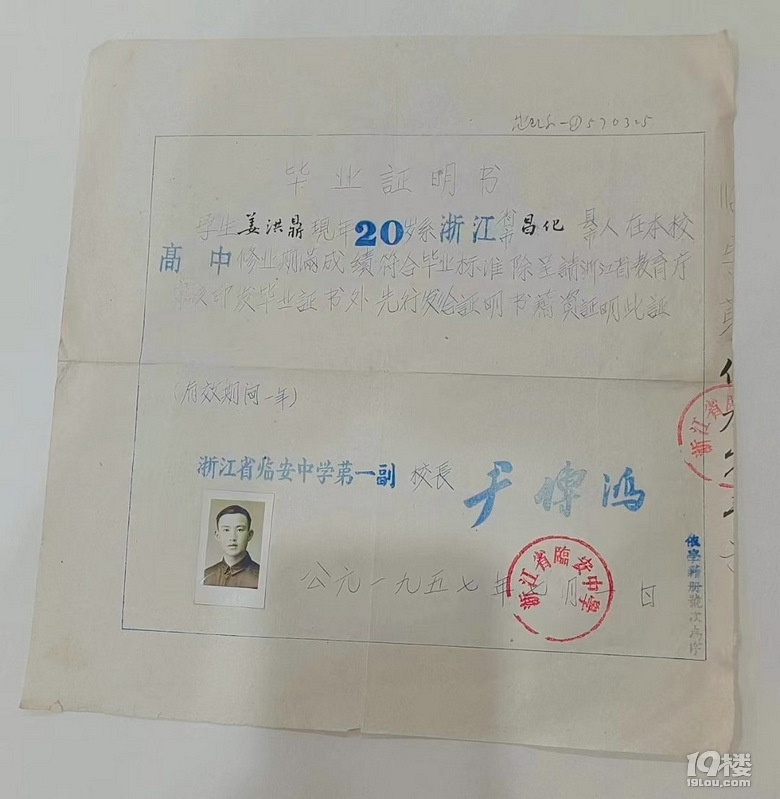 毕业証明书
学生姜洪鼎現年20岁系浙江省市昌化县市人在本校
高中修业期滿成績符合毕业标准除呈請浙江省教育厅
印发毕业証书外先行发给証明书藉資証明此証
(有效期间一年)
浙江省临安中学第一副校長
公元一九五七年 月 日
浙江省臨安中學
浙江省臨
依學籍册號次為序
19楼
19lou.com